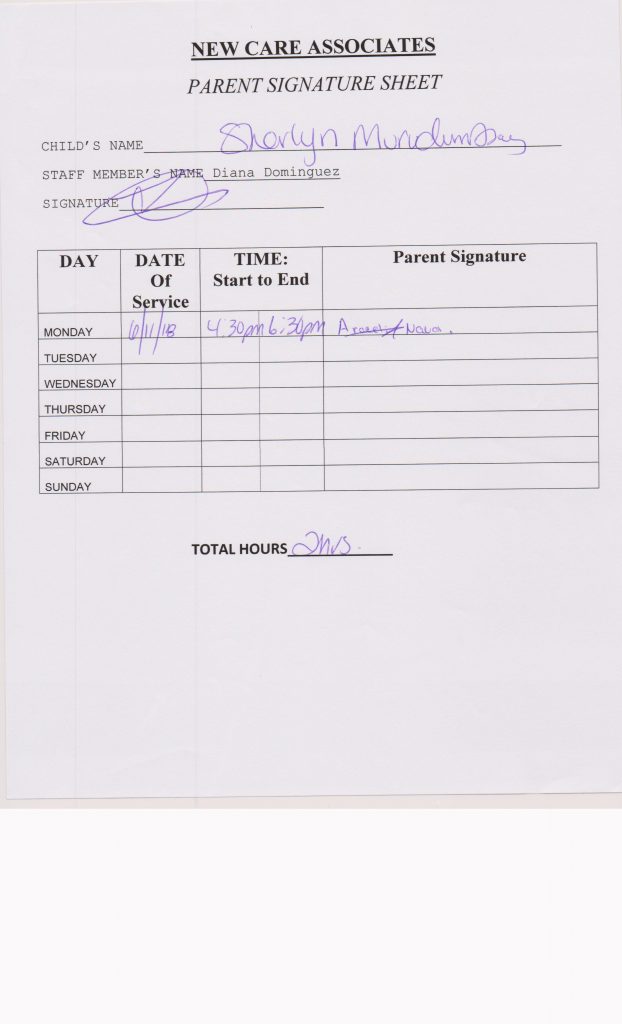 NEW CARE ASSOCIATES
PARENT SIGNATURE SHEET
CHILD'S NAME Sherlyn
STAFF MEMBER'S NAME Diana Dominguez
SIGNATURE
DAY DATE Of Service TIME: Start to End Parent Signature
MONDAY 6/11/18 4:30pm 6:30pm Araceli Nava.
TUESDAY
WEDNESDAY
THURSDAY
FRIDAY
SATURDAY
SUNDAY
TOTAL HOURS 2hrs.